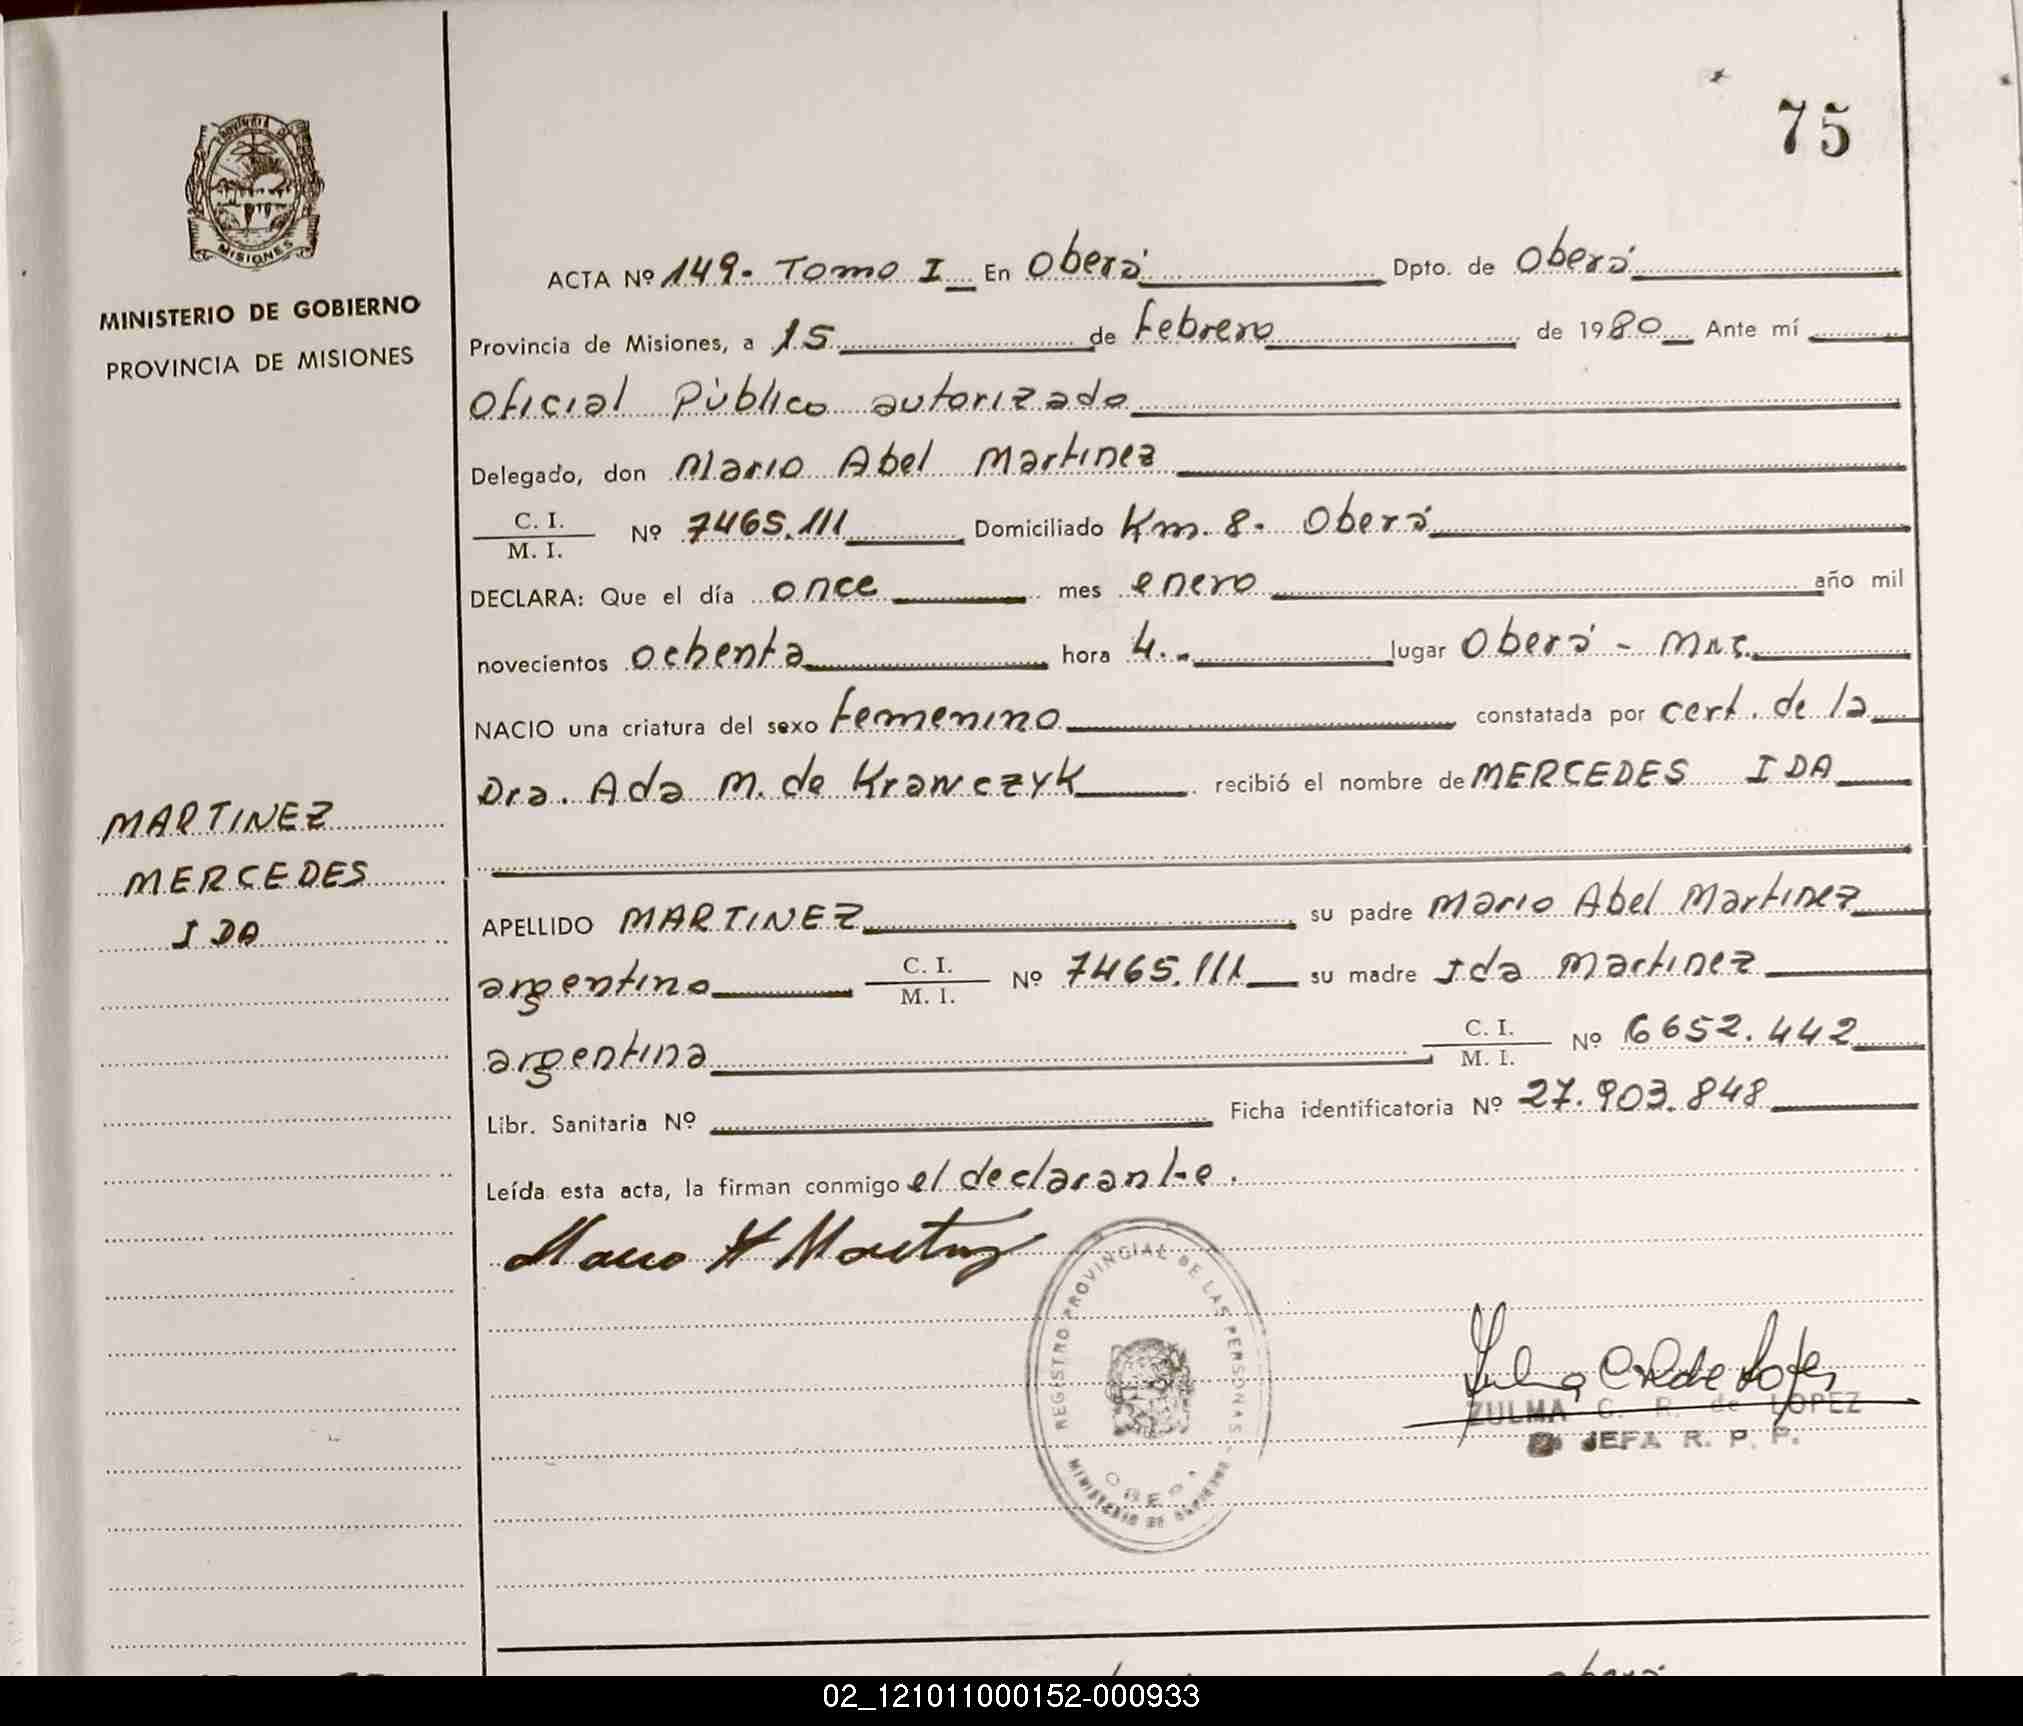 75
PROVINCIA DE
MISIONES
MINISTERIO DE GOBIERNO
PROVINCIA DE MISIONES
MARTINEZ
MERCEDES
IDA
ACTA Nº 149- Tomo I En Oberá Dpto. de Oberá
Provincia de Misiones, a 15 de febrero de 1980 Ante mí
Oficial Público autorizado
Delegado, don Mario Abel Martinez
C. I. / M. I. Nº 7465.111 Domiciliado Km. 8. Oberá
DECLARA: Que el día once mes enero año mil
novecientos ochenta hora 4.- lugar Oberá - Mnes.
NACIO una criatura del sexo femenino constatada por cert. de la
Dra. Ada M. de Krawczyk recibió el nombre de MERCEDES IDA
APELLIDO MARTINEZ su padre Mario Abel Martinez
argentino C. I. / M. I. Nº 7465.111 su madre Ida Martinez
argentina C. I. / M. I. Nº 6652.442
Libr. Sanitaria Nº Ficha identificatoria Nº 27.903.848
Leída esta acta, la firman conmigo el declarante.
Mario A Martinez
REGISTRO PROVINCIAL DE LAS PERSONAS - MINISTERIO DE GOBIERNO -
OBERA
Zulma C R de Lopez
ZULMA C. R. de LOPEZ
JEFA R. P. P.
02_121011000152-000933